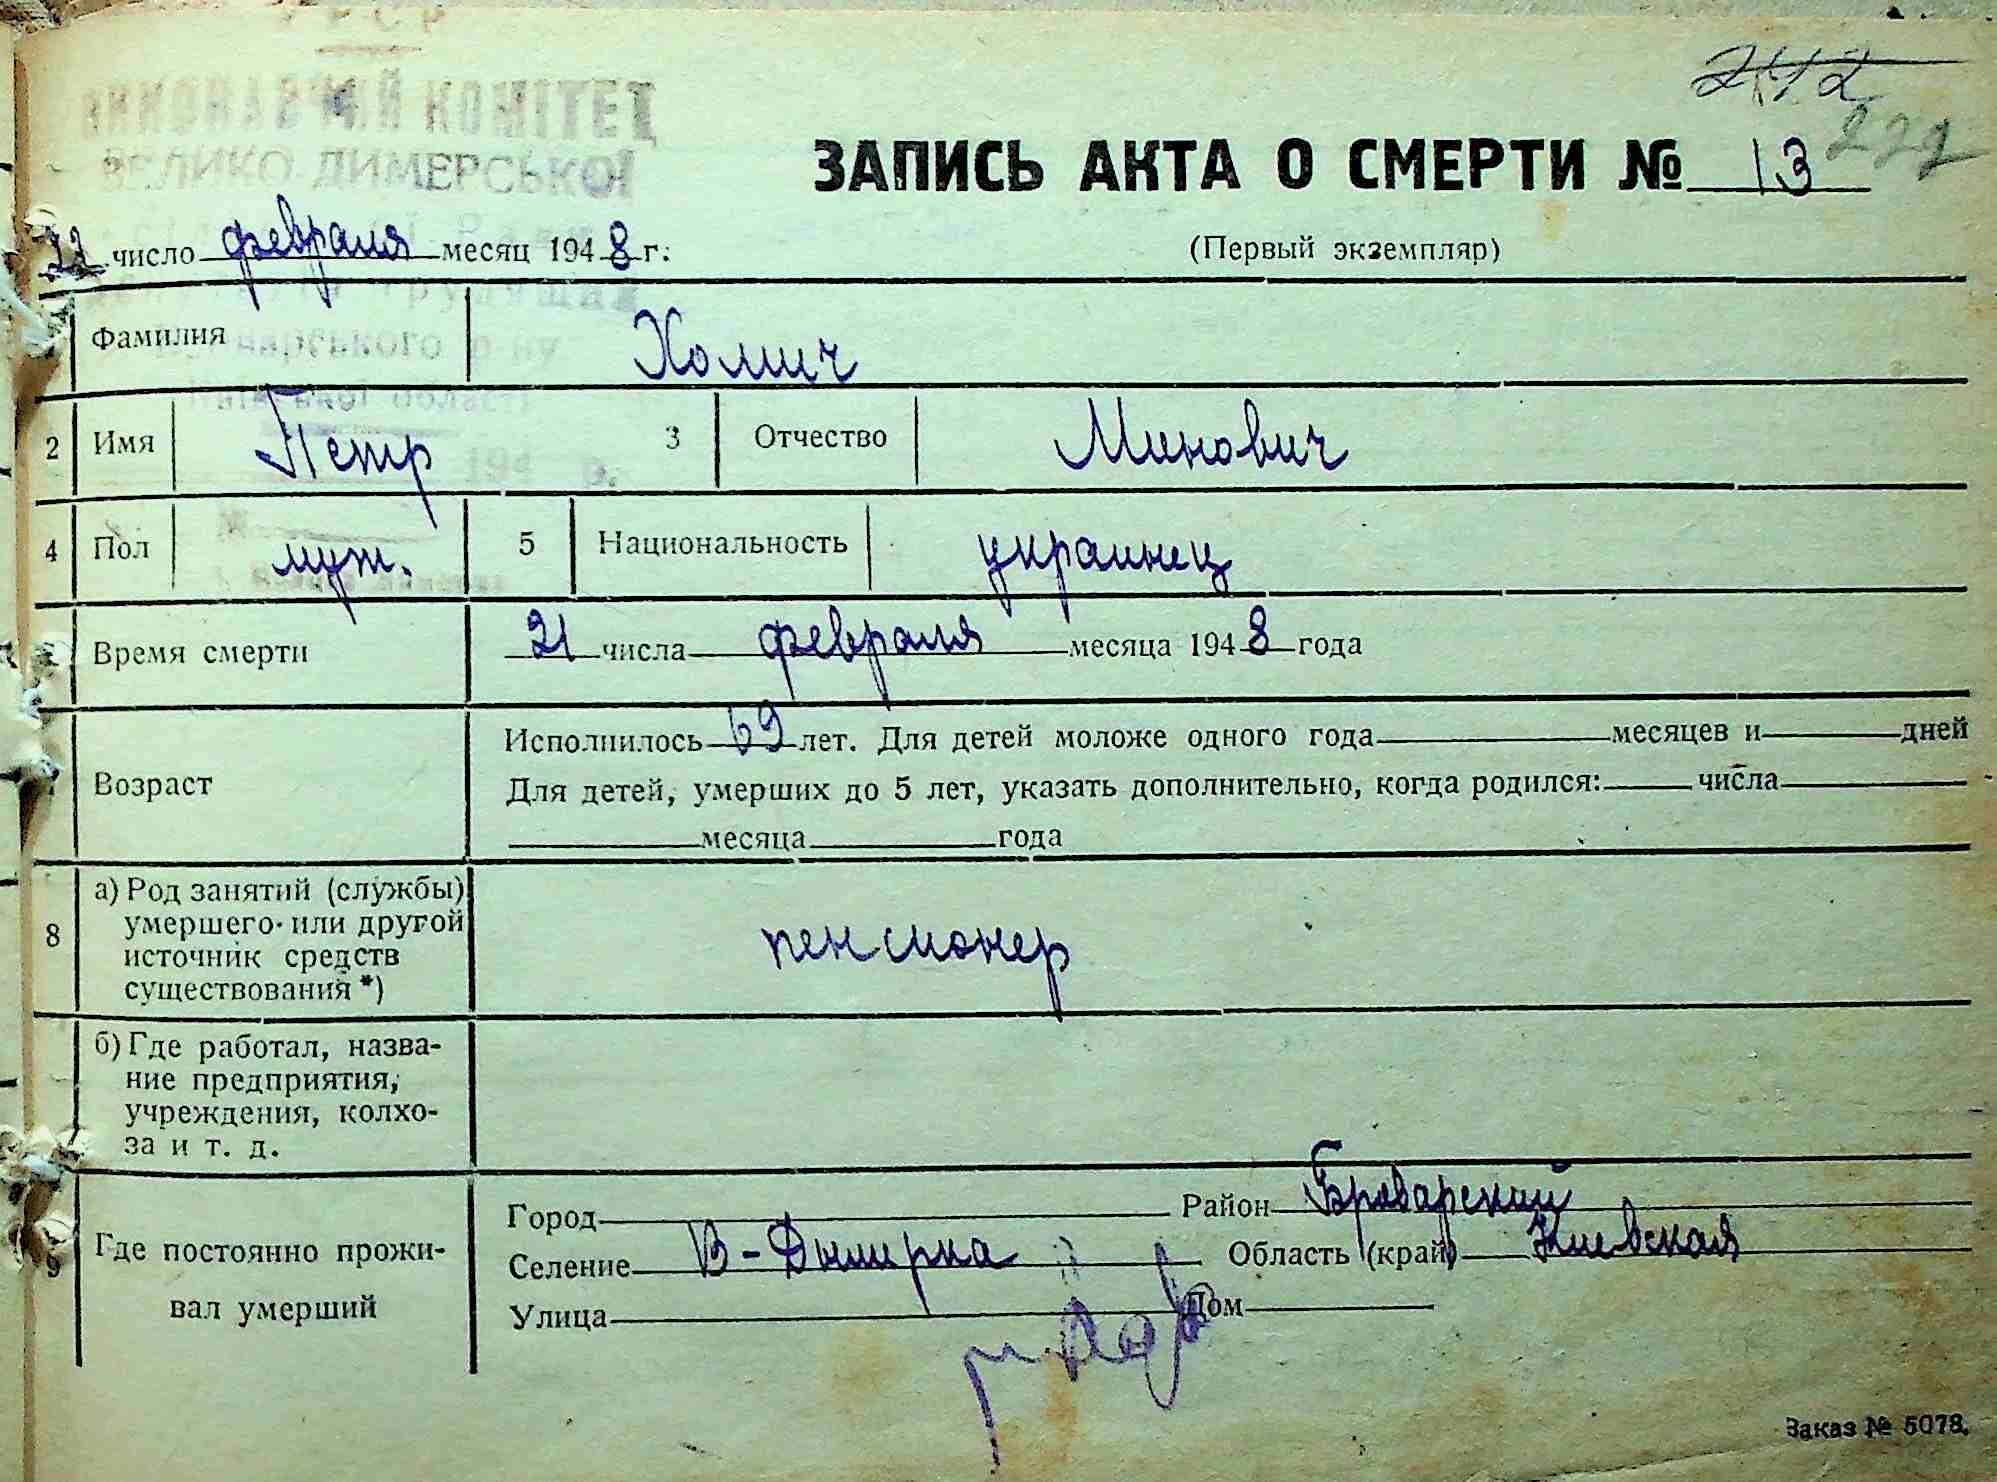 УРСР
ВИКОНАВЧИЙ КОМІТЕТ
ВЕЛИКО-ДИМЕРСЬКОЇ
242
222
ЗАПИСЬ АКТА О СМЕРТИ № 13
(Первый экземпляр)
22 число февраля месяц 1948 г.
Фамилия Хомич
2 Имя Петр 3 Отчество Минович
4 Пол муж. 5 Национальность украинец
Время смерти 21 числа февраля месяца 1948 года
Возраст Исполнилось 69 лет. Для детей моложе одного года месяцев и дней
Для детей, умерших до 5 лет, указать дополнительно, когда родился: числа
месяца года
8 а) Род занятий (службы) умершего или другой источник средств существования *) пенсионер
б) Где работал, назва-
ние предприятия,
учреждения, колхо-
за и т. д.
9 Где постоянно прожи-
вал умерший
Город Район Броварский
Селение В-Дымерка Область (край) Киевская
Улица Дом
Заказ № 5078.